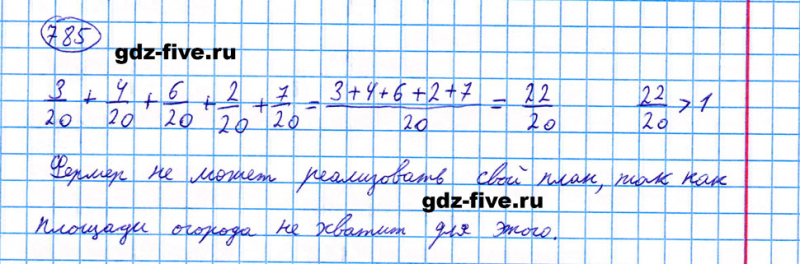 785
gdz-five.ru
3/20 + 4/20 + 6/20 + 2/20 + 7/20 = (3+4+6+2+7)/20 = 22/20 22/20 > 1
Фермер не может реализовать свой план, так как
gdz-five.ru
площади огорода не хватит для этого.